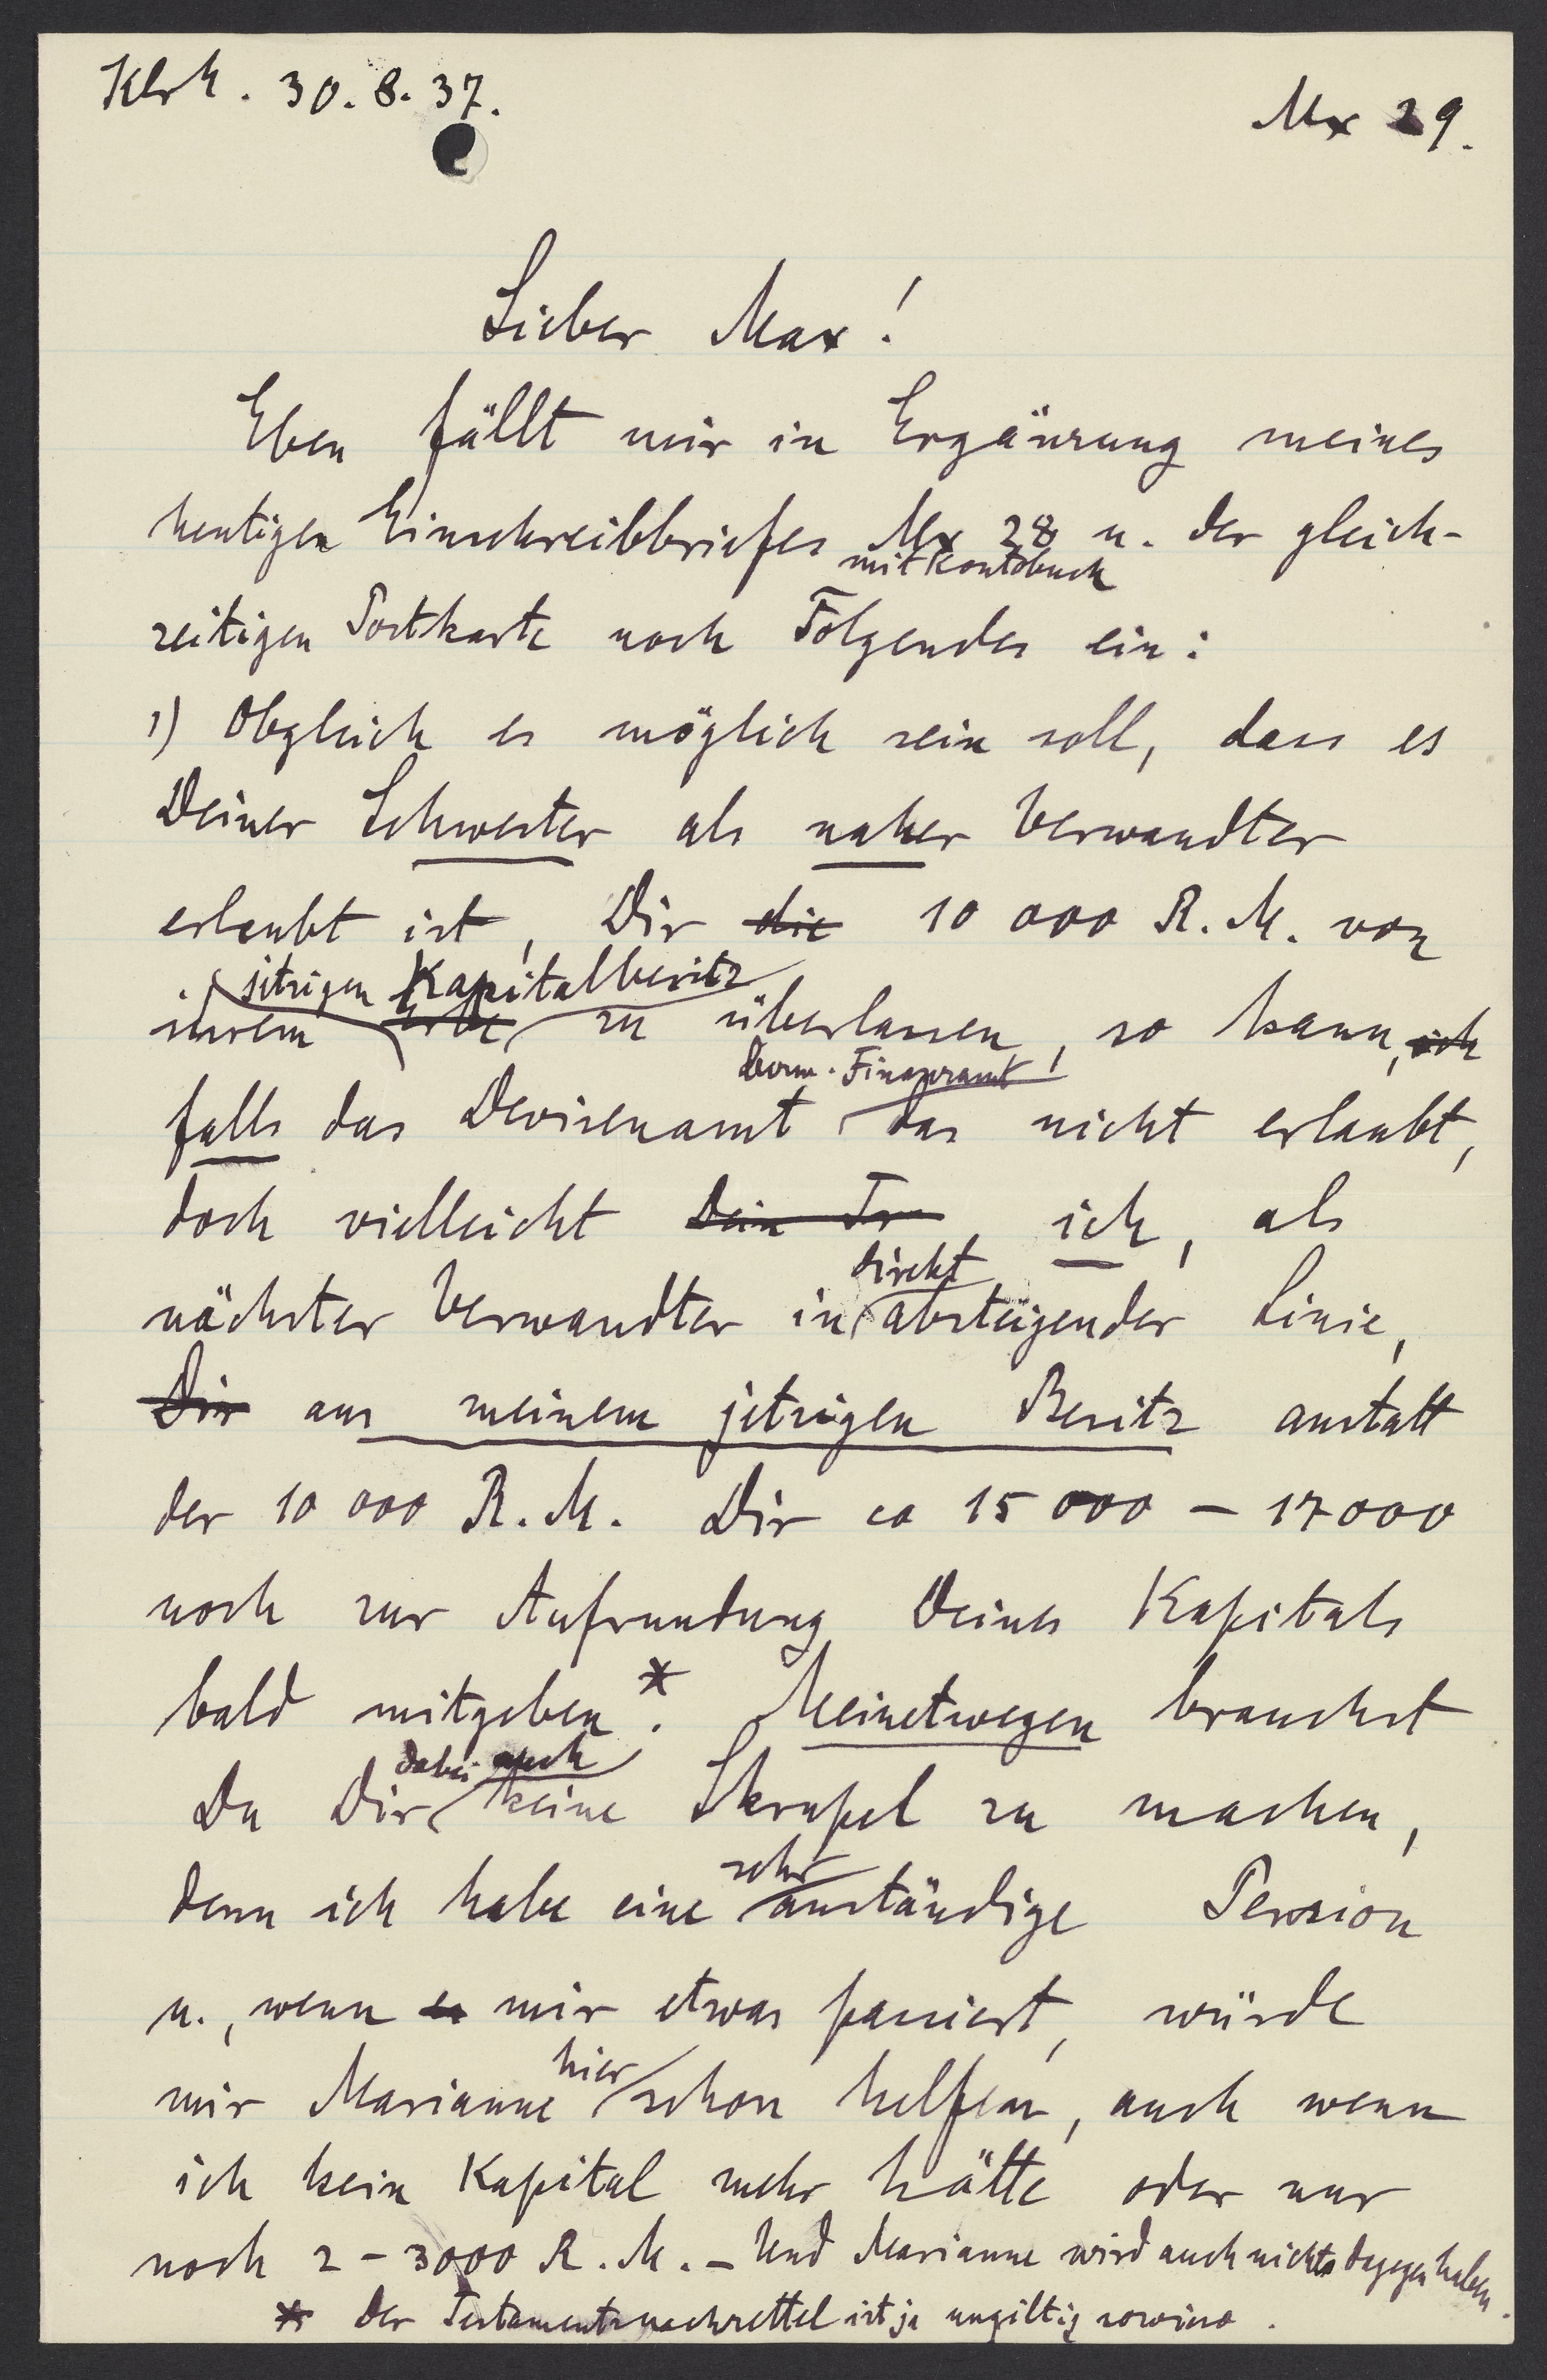 Klrh. 30.8.37.
Mx 29.
Lieber Max!
Eben fällt mir in Ergänzung meines
heutigen Einschreibbriefes Mx 28 u. der gleich-
mit Kontobuch
zeitigen Postkarte noch Folgendes ein:
1) Obgleich es möglich sein soll, dass es
Deiner Schwester als naher Verwandter
erlaubt ist, Dir die 10 000 R.M. von
jetzigen Kapitalbesitz
ihrem Erbe zu überlassen, so kann, ich
bezw. Finanzamt
falls das Devisenamt das nicht erlaubt,
doch vielleicht Dein Tr ich, als
direkt
nächster Verwandter in absteigender Linie,
Dir aus meinem jetzigen Besitz anstatt
der 10 000 R.M. Dir ca 15 000 – 17000
noch zur Aufrundung Deines Kapitals
bald mitgeben.*  Meinetwegen brauchst
dabei auch
Du Dir keine Skrupel zu machen,
sehr
denn ich habe eine anständige Pension
u., wenn es mir etwas passiert, würde
hier
mir Marianne schon helfen, auch wenn
ich kein Kapital mehr hätte oder nur
noch 2 – 3000 R.M. – Und Marianne wird auch nichts dagegen haben.
* Der Testamentsnachzettel ist ja ungiltig sowieso.